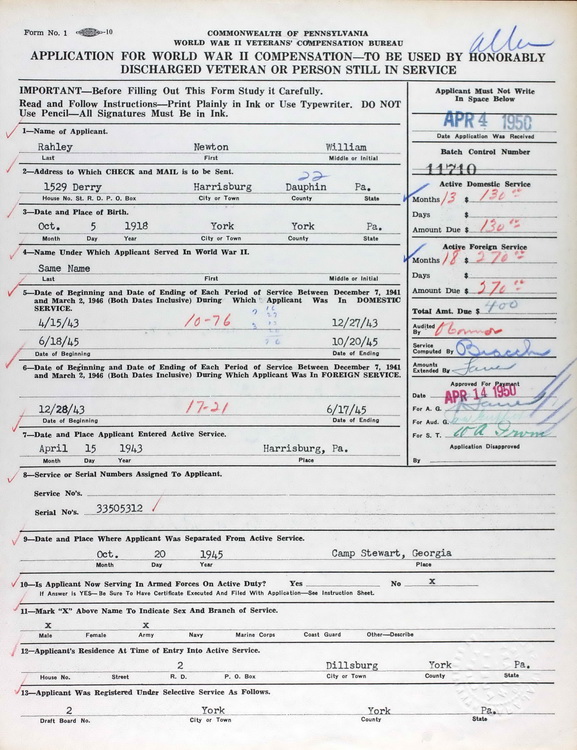 Form No. 1 -10
COMMONWEALTH OF PENNSYLVANIA
WORLD WAR II VETERANS' COMPENSATION BUREAU
APPLICATION FOR WORLD WAR II COMPENSATION—TO BE USED BY HONORABLY
DISCHARGED VETERAN OR PERSON STILL IN SERVICE
IMPORTANT—Before Filling Out This Form Study it Carefully.
Read and Follow Instructions—Print Plainly in Ink or Use Typewriter. DO NOT
Use Pencil—All Signatures Must be in Ink.
1—Name of Applicant.
Rahley Newton William
Last First Middle or Initial
2—Address to Which CHECK and MAIL is to be Sent.
22
1529 Derry Harrisburg Dauphin Pa.
House No. St. R. D. P. O. Box City or Town County State
3—Date and Place of Birth.
Oct. 5 1918 York York Pa.
Month Day Year City or Town County State
4—Name Under Which Applicant Served In World War II.
Same Name
Last First Middle or Initial
5—Date of Beginning and Date of Ending of Each Period of Service Between December 7, 1941
and March 2, 1946 (Both Dates Inclusive) During Which Applicant Was In DOMESTIC
SERVICE.
4/15/43 10-76 12/27/43
6/18/45 10/20/45
Date of Beginning Date of Ending
6—Date of Beginning and Date of Ending of Each Period of Service Between December 7, 1941
and March 2, 1946 (Both Dates Inclusive) During Which Applicant Was In FOREIGN SERVICE.
12/28/43 17-21 6/17/45
Date of Beginning Date of Ending
7—Date and Place Applicant Entered Active Service.
April 15 1943 Harrisburg, Pa.
Month Day Year Place
8—Service or Serial Numbers Assigned To Applicant.
Service No's.
Serial No's. 33505312
9—Date and Place Where Applicant Was Separated From Active Service.
Oct. 20 1945 Camp Stewart, Georgia
Month Day Year Place
10—Is Applicant Now Serving In Armed Forces On Active Duty? Yes No X
If Answer is YES—Be Sure To Have Certificate Executed And Filed With Application—See Instruction Sheet.
11—Mark "X" Above Name To Indicate Sex and Branch of Service.
X X
Male Female Army Navy Marine Corps Coast Guard Other—Describe
12—Applicant's Residence At Time of Entry Into Active Service.
2 Dillsburg York Pa.
House No. Street R. D. P. O. Box City or Town County State
13—Applicant Was Registered Under Selective Service As Follows.
2 York York Pa.
Draft Board No. City or Town County State
Applicant Must Not Write
In Space Below
APR 4 1950
Date Application Was Received
Batch Control Number
11710
Active Domestic Service
Months 13 $ 130.00
Days $
Amount Due $ 130.00
Active Foreign Service
Months 18 $ 270.00
Days $
Amount Due $ 270.00
Total Amt. Due $ 400
Audited
By O'Connor
Service
Computed By
Amounts
Extended By
Approved For Payment
Date APR 14 1950
For A. G.
For Aud. G.
For S. T.
Application Disapproved
By